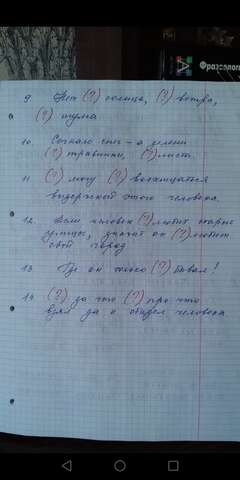 Фразеолог
9 Нет (?) солнца, (?) ветра,
(?) шума
10. Согнало снег – а зелени
(?) травинки, (?) листа.
11 (?) могу (?) восхищаться
выдержкой этого человека.
12. Если человек (?) любит старые
улицы, значит он (?) любит
свой город
13 Где он только (?) бывал!
14 (?) за что (?) про что
взял да и обидел человека